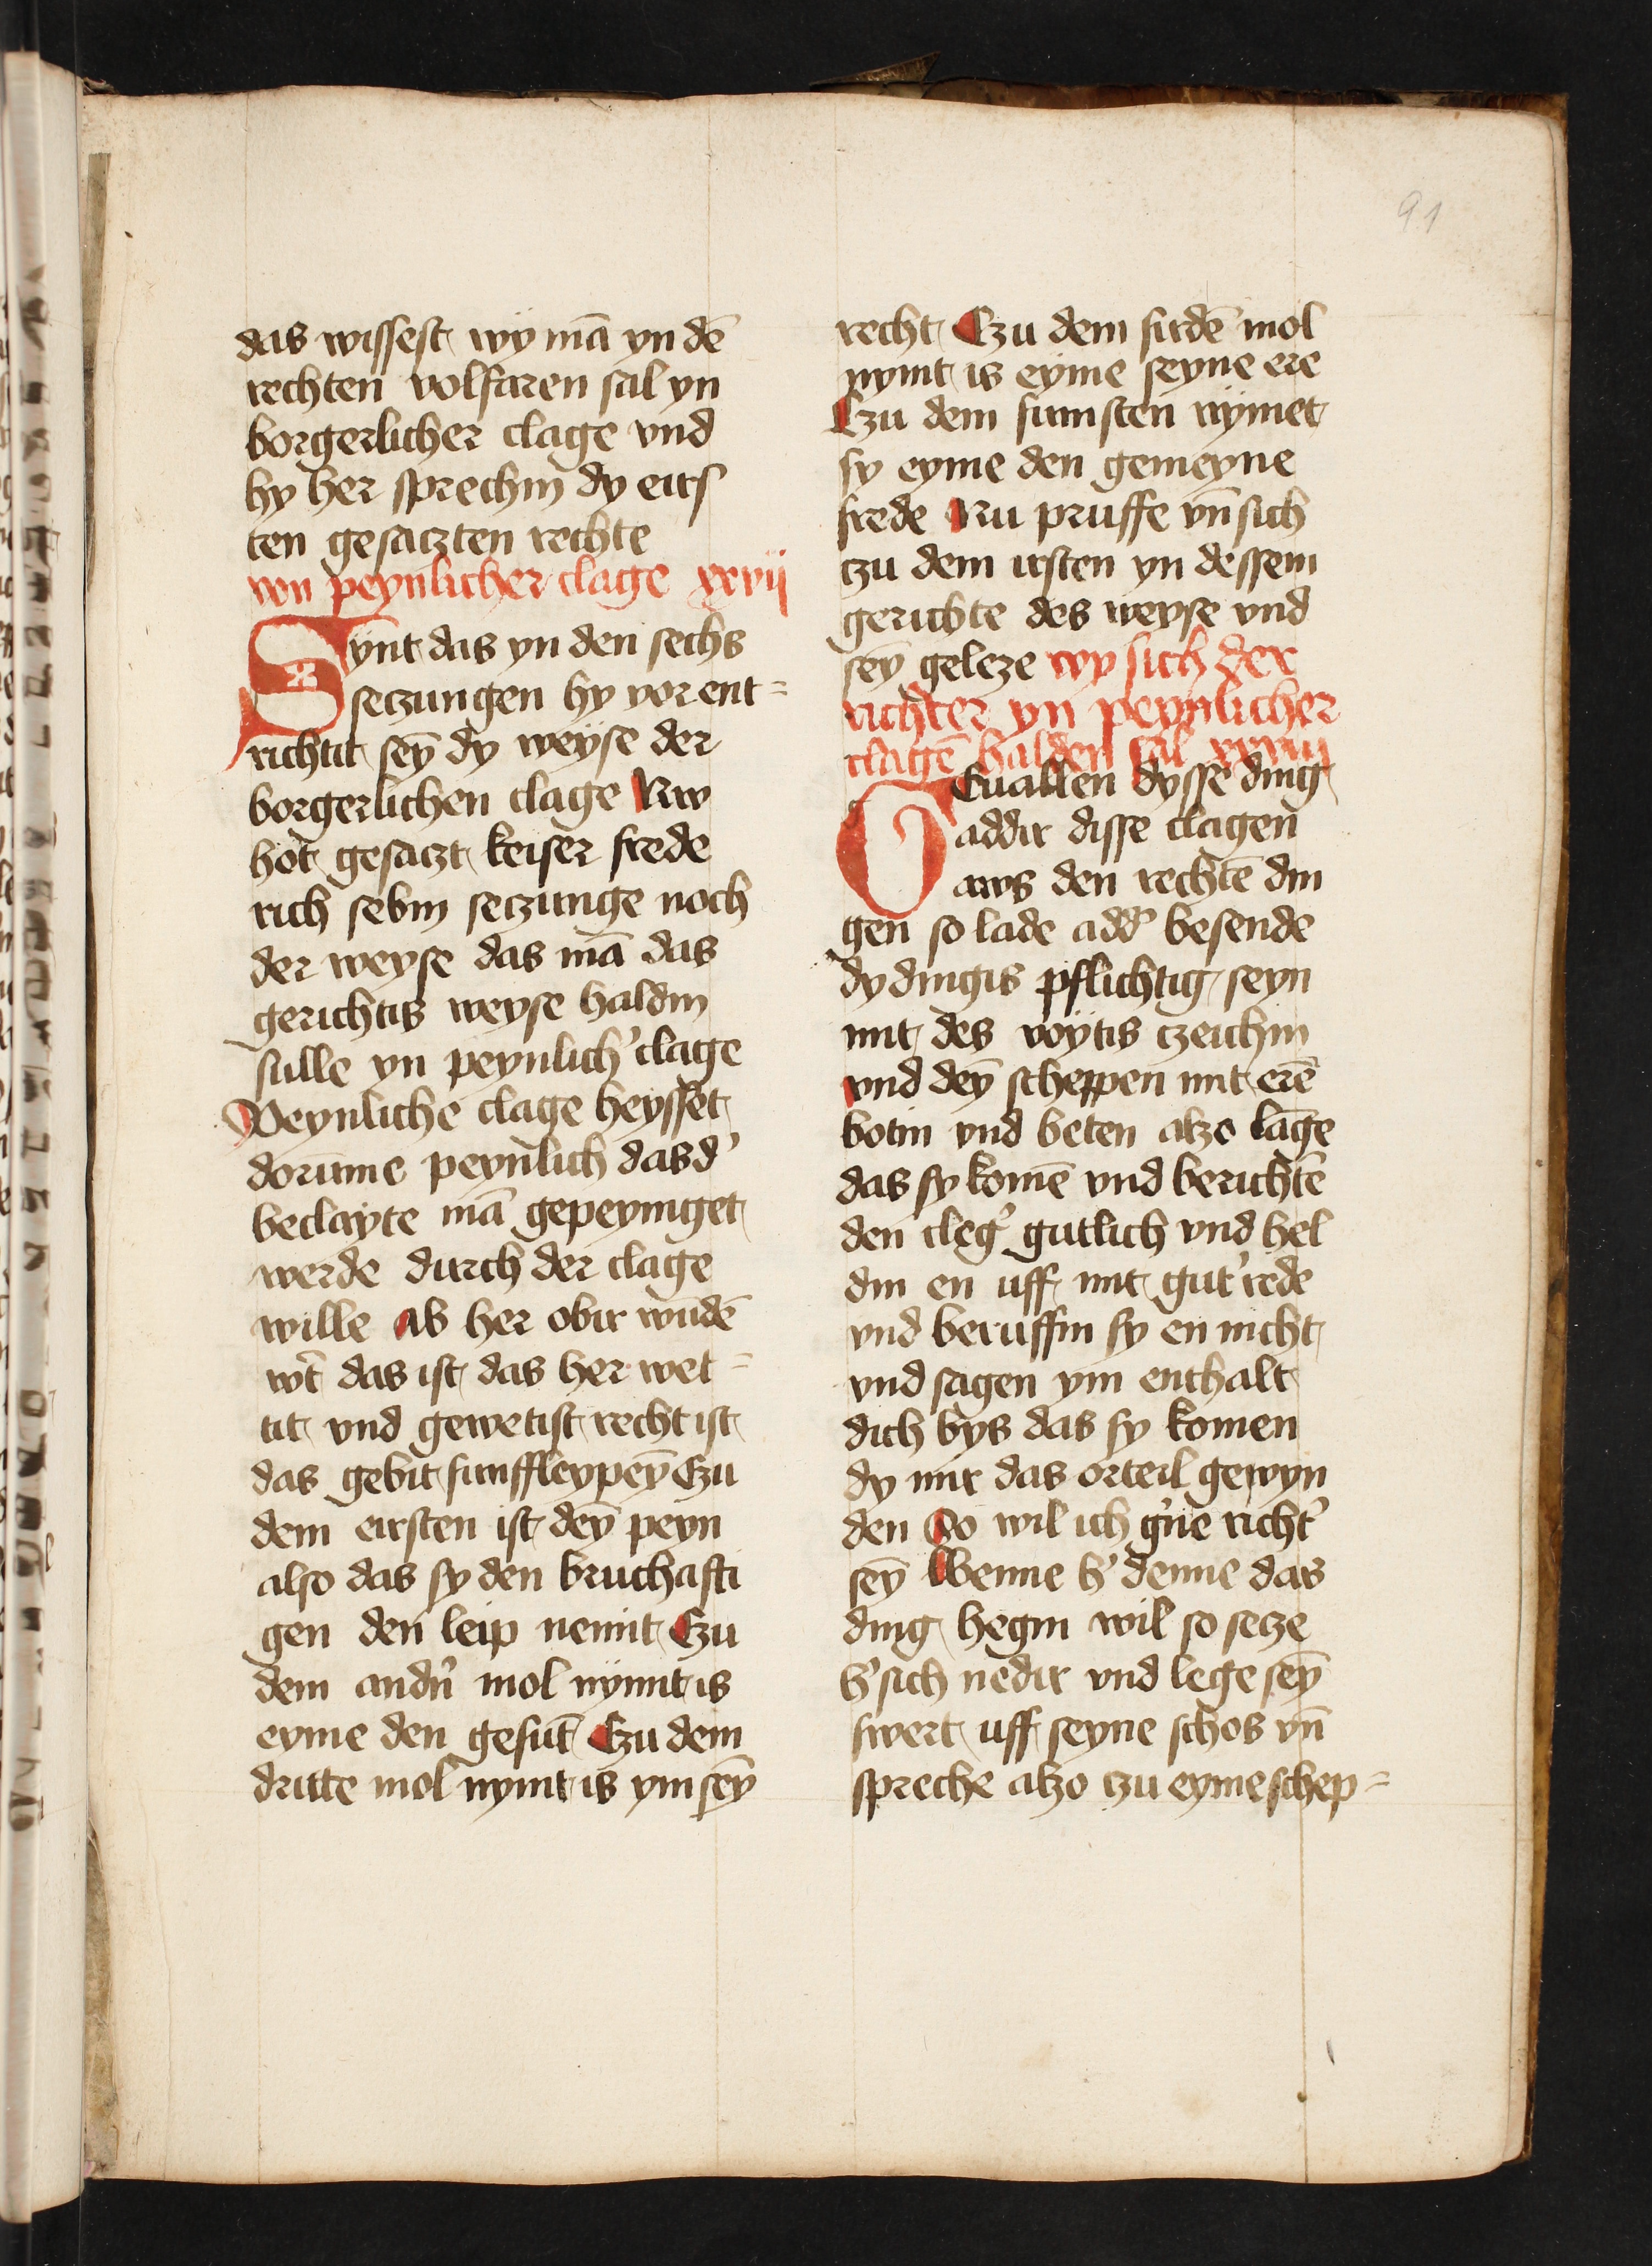 91
das wissest wy mā yn dē
rechten volfaren sal yn
borgerlicher clage vnd
hy her sprechin dy eirs
ten gesaczten rechte
von peynlicher clage xxvij
Synt das yn den sechs
seczungen hy vor ent=
richtit sey̅ dy weyse der
borgerlichen clage Nw
hot gesaczt keiser frede
rich sebin seczunge noch
der weyse das mā das
gerichtis weyse haldin
sulle yn peynlich' clage
Peynliche clage heysset
dorūme peynlich das d'
beclayte mā gepeyniget
werde durch der clage
wille ab her obir wūdē
wt' das ist das her wet=
tit vnd gewetist recht ist
das gebit funffley pey̅ Czu
dem eirsten ist dey̅ peyn
also das sy den bruchafti
gen den leip nemit Czu
dem andn' mol nymt is
eyme den gesūt Czu dem
dritte mol nymt is ym sey̅
recht Czu dem firdē mol
nymt is eyme seyne ere
Czu dem fumften nymet
sy eyme den gemeyne
frede Nu pruffe vn̄ sich
czu dem irsten yn dessem
gerichte des weyse vnd
sey̅ geleze wy sich der
richter yn peynlicher
clagē halden sal xxviij
O Cuallen dysse ding
addir disse clagen
aws den rechtē din
gen so lade add' besende
dy dingis pflichtig seyn
mit des voytis czeichin
vnd dey̅ scheppen mit erē
botin vnd beten alzo lāge
das sy komē vnd berichtē
den cleg' gutlich vnd hel
din en uff mit gut' rede
vnd beruffin sy en nicht
vnd sagen ym enthalt
dich bys das sy komen
dy mir das orteil gewyn
den So wil ich g'ne richt'
sey̅ Wenne h' denne das
ding hegin wil so secze
h' sich nedir vnd lege sey̅
swert uff seyne schos vn̄
spreche alzo czu eyme schep=